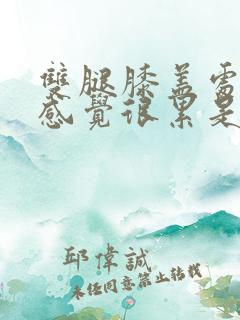 雙腿膝蓋處
感覺很累是
邱偉誠
未经同意禁止转载